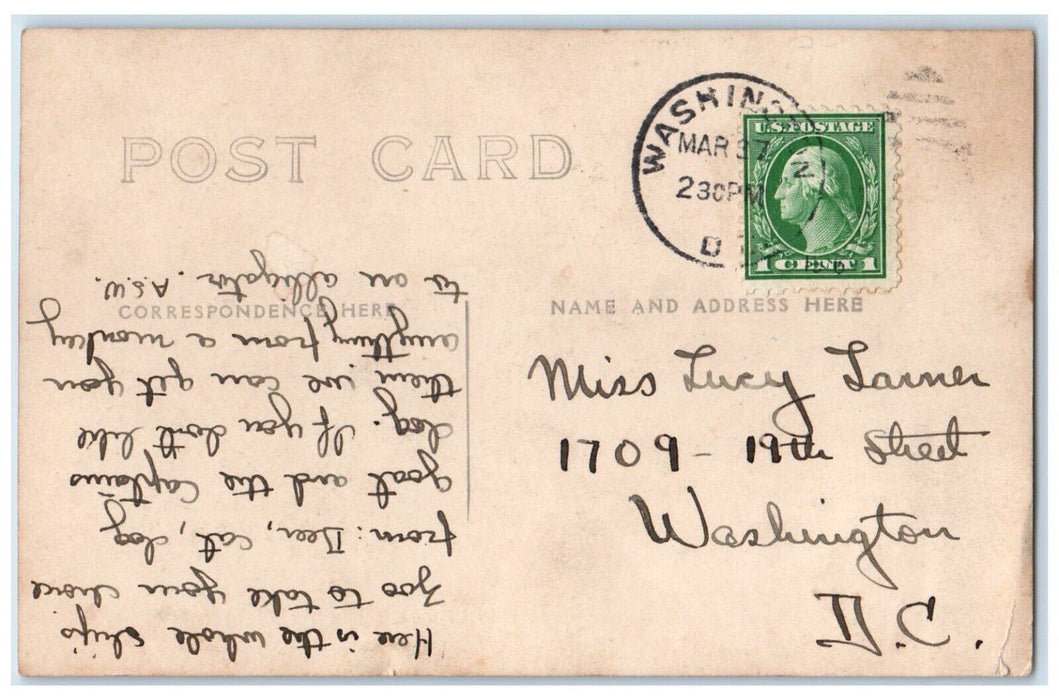 POST CARD
WASHINGTON
MAR 27
230 PM
D.C.
U.S. POSTAGE
1 CENT 1
CORRESPONDENCE HERE
NAME AND ADDRESS HERE
Miss Lucy Larner
1709 - 19th Street
Washington
D.C.
Here is the whole ship's
Zoo to take your choice
from: Deer, cat, dog
goat and the Captains
dog. If you don't like
them we can get you
anything from a monkey
to an alligator. A.S.W.